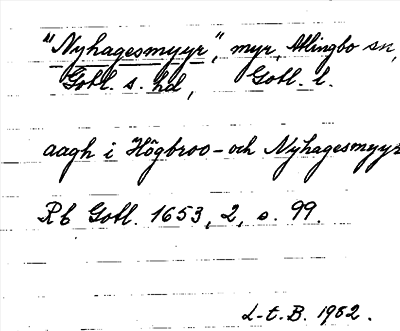 "Nyhagesmyyr", myr, Atlingbo sn,
Gotl. s. hd, Gotl. l.
aagh i Högbroo- och Nyhagesmyyr
Rb Gotl. 1653, 2, s. 99.
L-t. B. 1982.